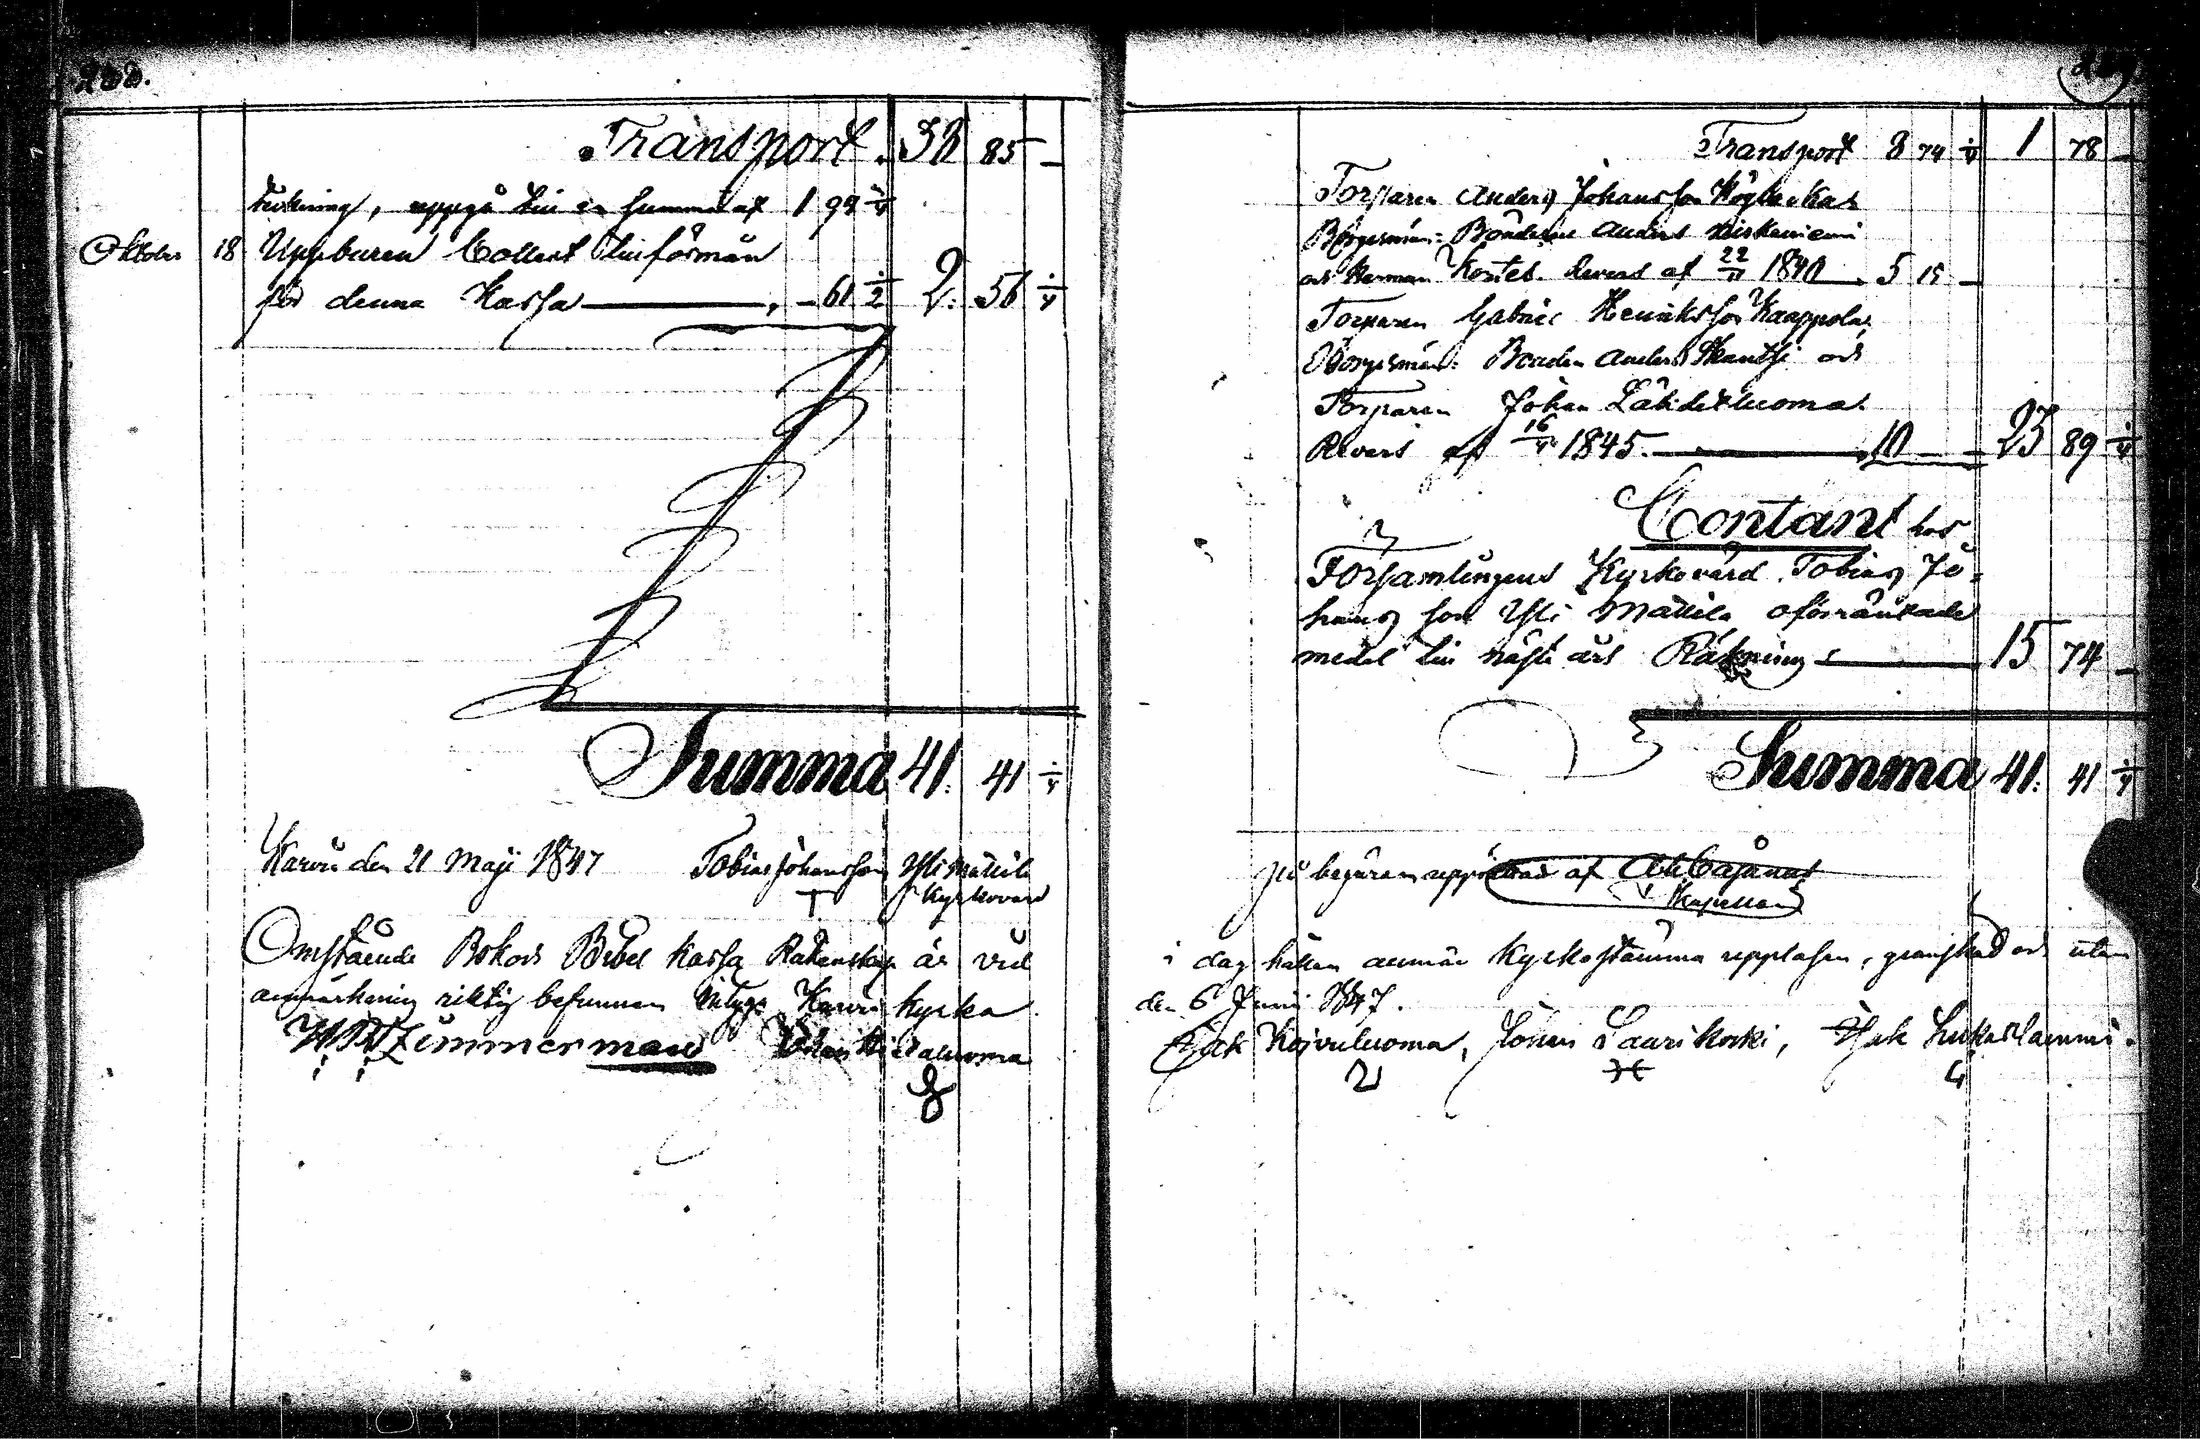 Transport. 38 85 –
teckning, uppgå till en summa af 1 94 3/4
Oktober 18 Uppburen Collect till förmån
för denna Kassa – 61 1/2 2. 56 1/4
Summa 41. 41 1/4
Karvia den 21 Maji 1847 Tobias Johansson Yli Mattila
Kyrkovärd
Omstående Bok och Bibel Kassa Räkenskap är vid
anmärkning riktig befunnen intygar Karvia kyrka
Zimmerman Johan
Transport 8 74 1/4 1 78 –
Torparen Anders Johansson
Borgesmän: Bönderne Anders
och Herman Kontes. Revers af 22/11 1840. 5 15 –
Torparen Gabriel Henriksson Kaappola,
Borgesmän: Bonden Anders Skantsi och
Torparen Johan Lähdeluoma.
Revers af 1845. 10 – – 23 89 1/4
Contant hos
Församlingens Kyrkovärd Tobias Jo-
hans son Yli Mattila oförräntade
medel till nästa års Räkning 15 74 –
Summa 41. 41 1/4
På begäran uppsatt af Cajanus
Kapellan
i dag hållen allmän Kyrkostämma uppläsen, granskad och utan
den 6 Junii 1847.
Isak Koivuluoma, Johan Laurikoski, Isak